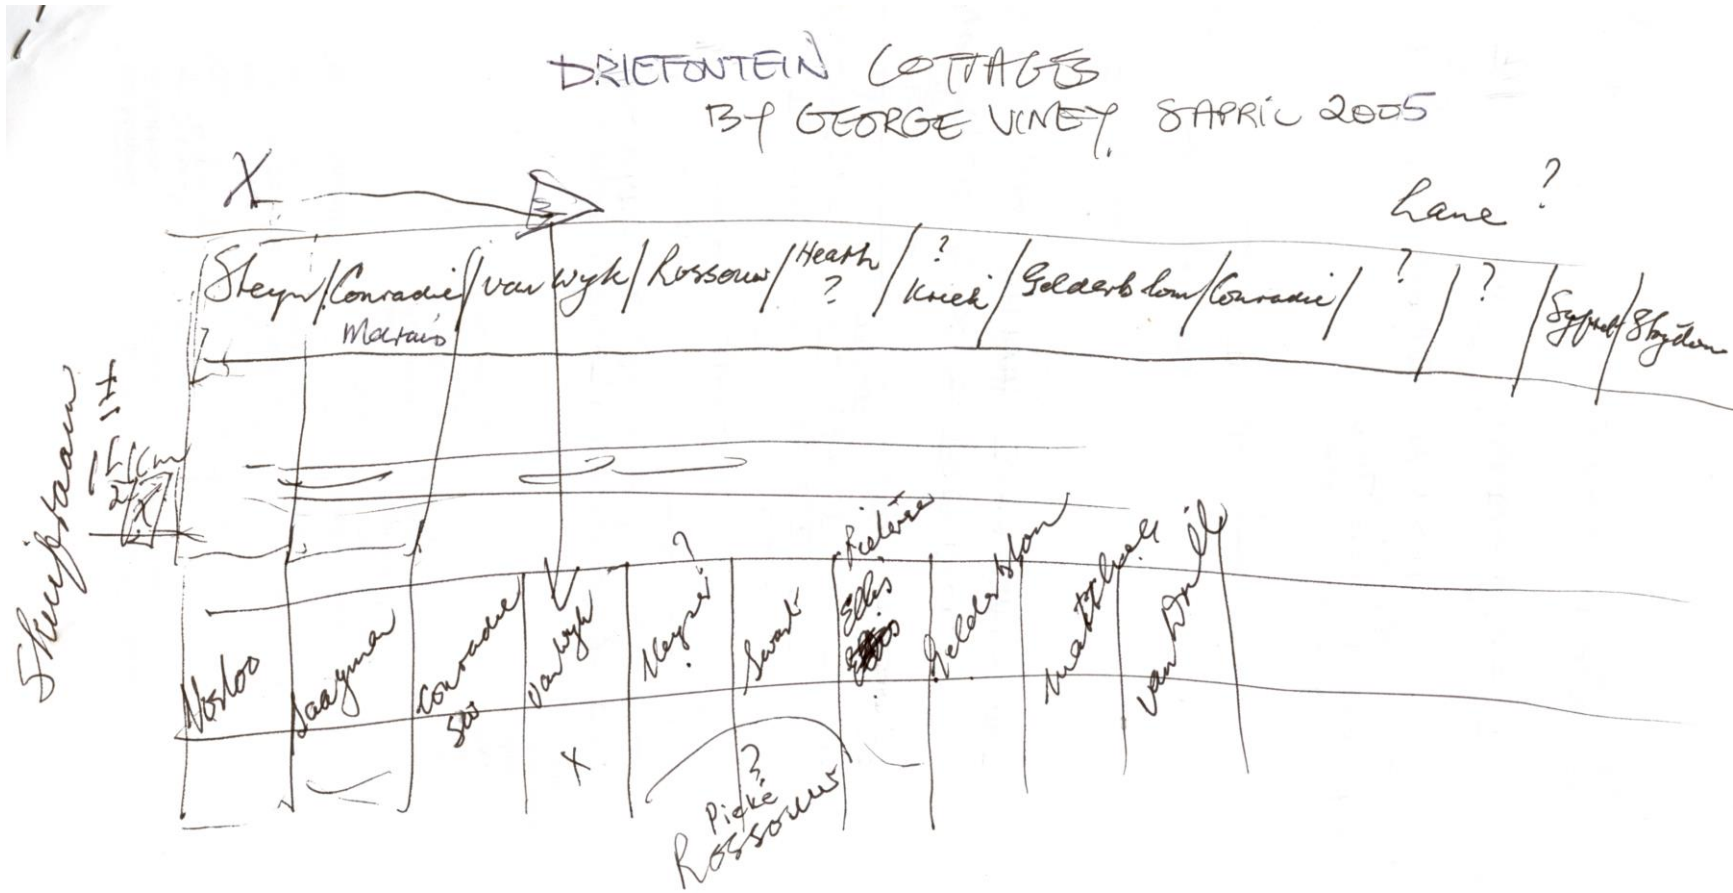 DRIEFONTEIN COTTAGES
BY GEORGE VINEY 8 APRIL 2005
X
Lane ?
Steyn / Conradie / van Wyk / Rossouw / Heath ? / ? Kriek / Gelderblom / Conradie / ? / ? / Syfret / Strydom
Marais
?
Vosloo
Saayman
Conradie
van Wyk
Meyer ?
Swart
Pieterse
Ellis
Gelderblom
van Driel
X
?
Pieké
Rossouw